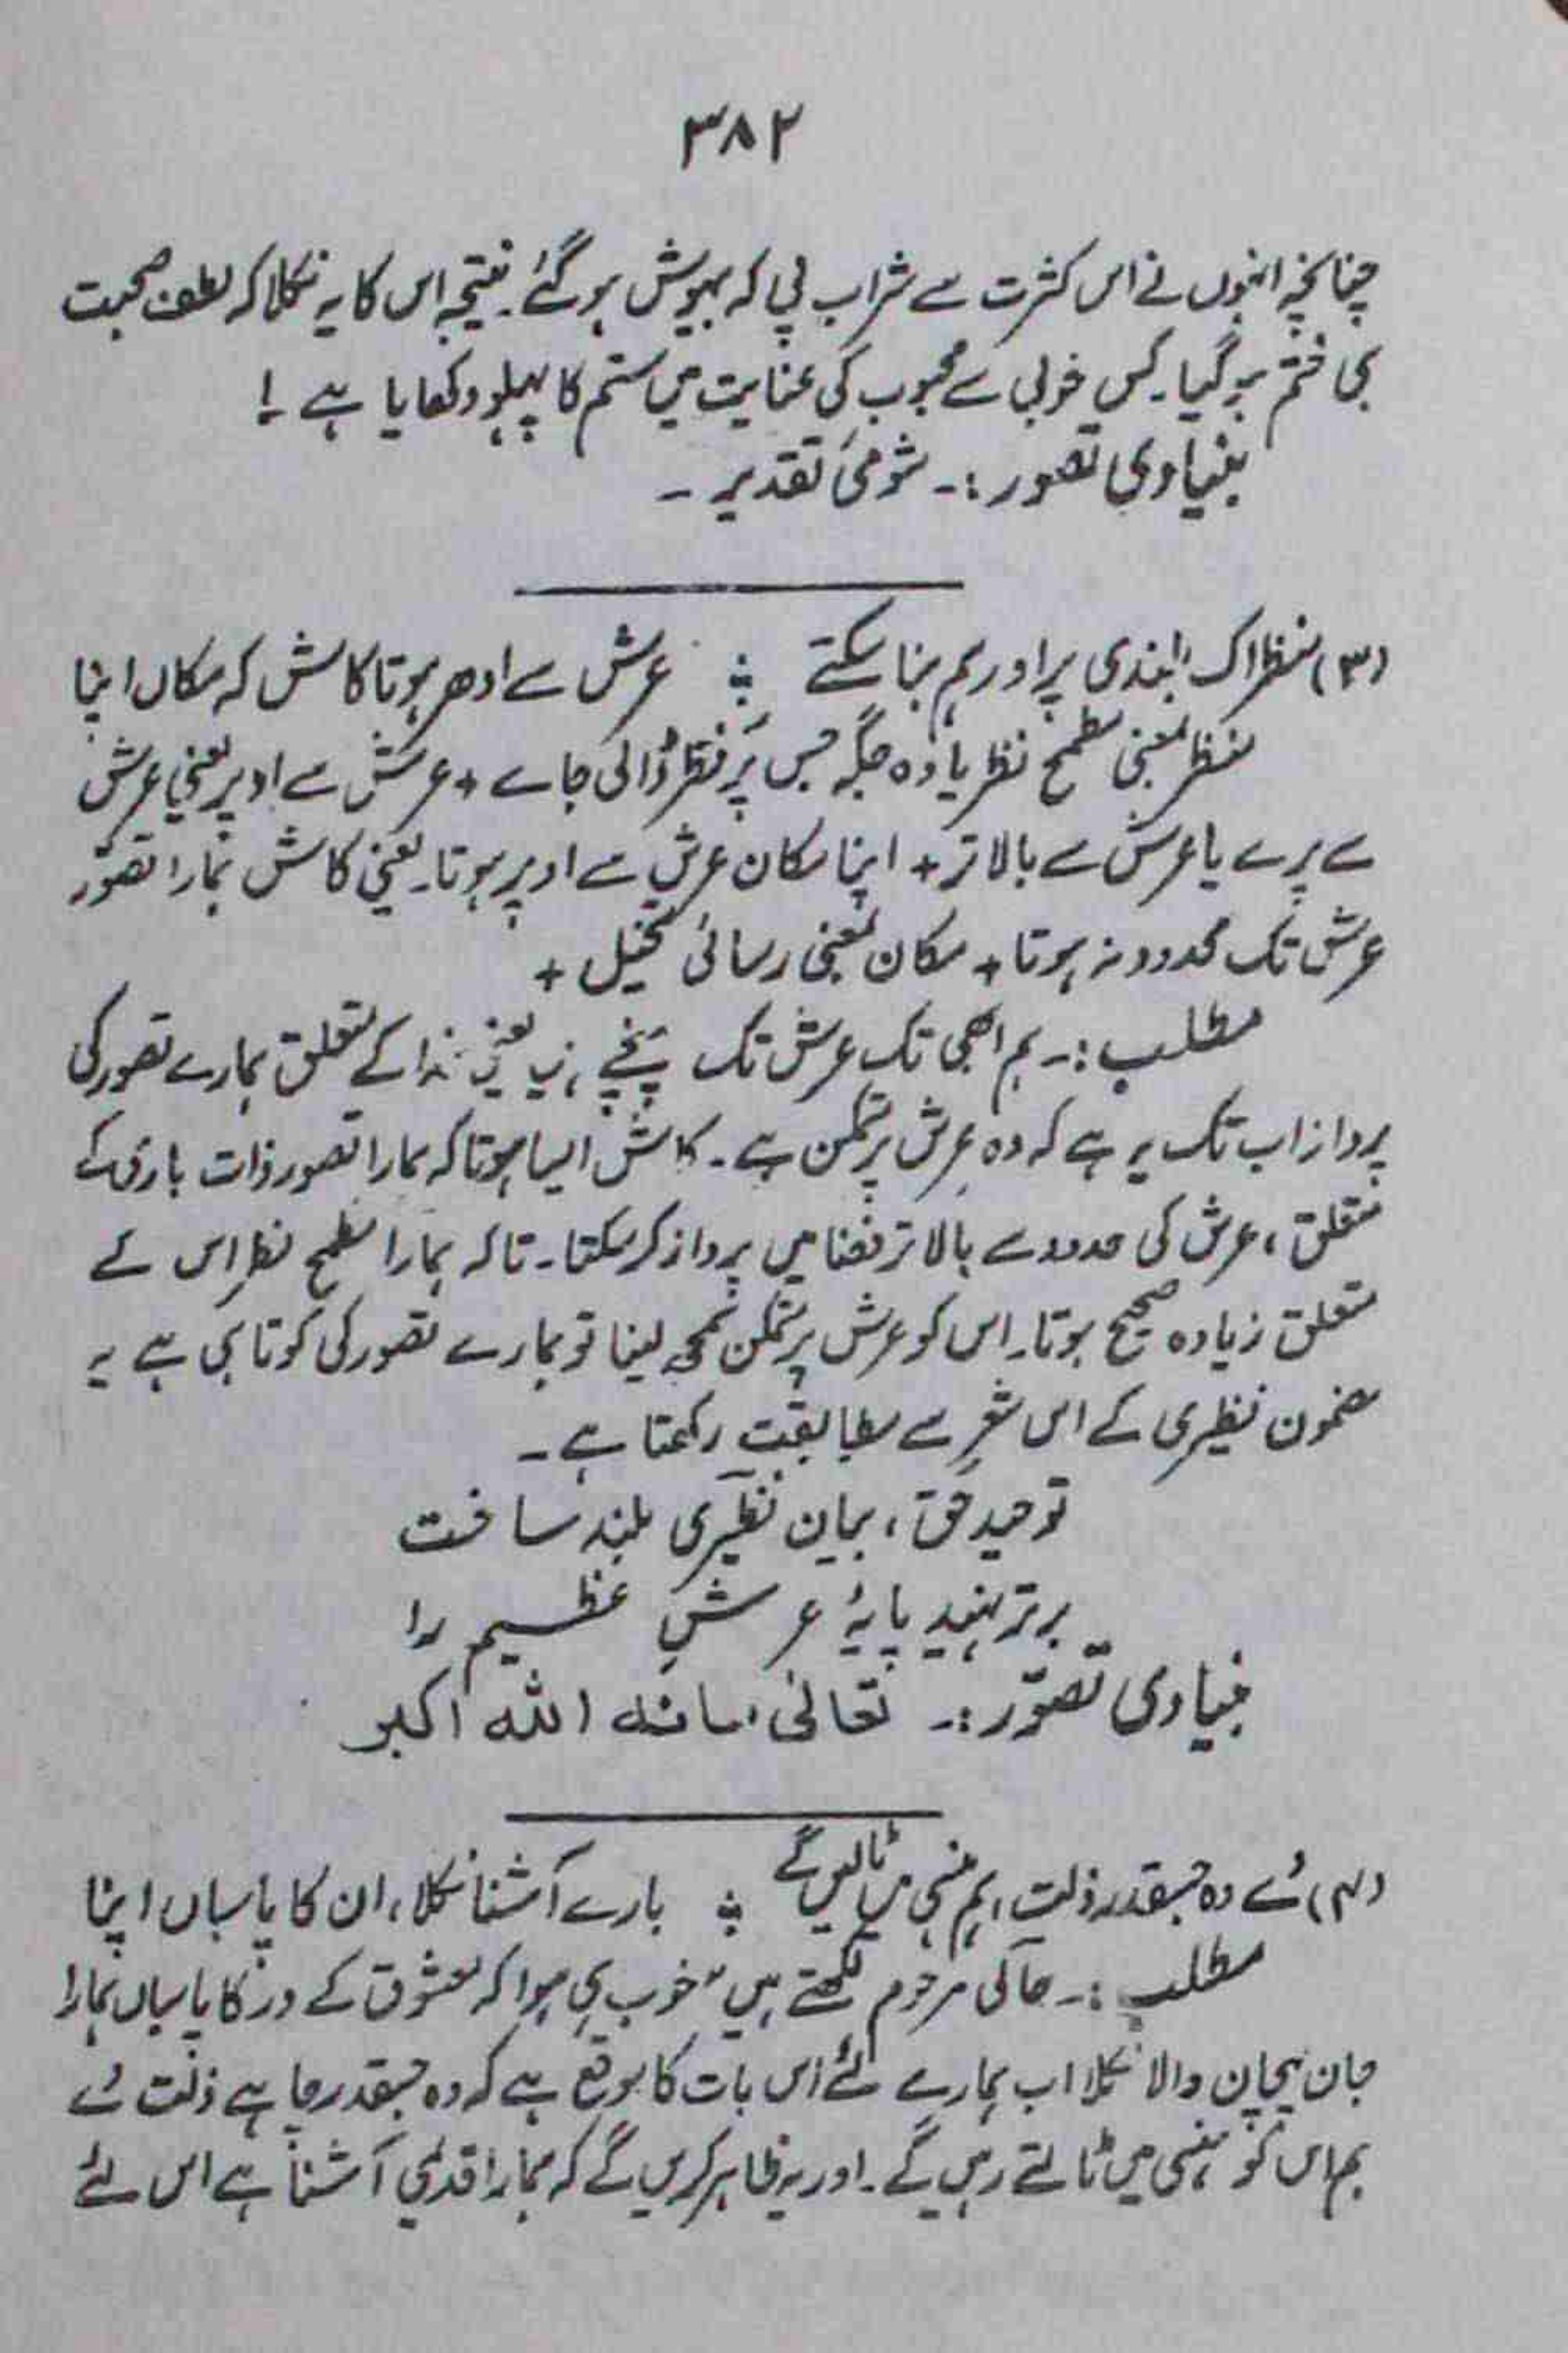 ۳۸۲
چنانچہ انہوں نے اس کثرت سے شراب پی کہ بیہوش ہو گئے۔ نتیجہ اس کا یہ نکلا کہ لطف صحبت
ہی ختم ہو گیا۔ کس خوبی سے محبوب کی عنایت میں ستم کا پہلو دکھایا ہے !
بنیادی تصور :۔ شومئ تقدیر ۔
(۳) منظر اک بلندی پر اور ہم بنا سکتے ؞ عرش سے ادھر ہوتا کاش کہ مکاں اپنا
منظر بمعنی مطمح نظر یا وہ جگہ جس پر نظر ڈالی جاے + عرش سے ادپر یعنی عرش
سے پرے یا عرش سے بالاتر + اپنا مکان عرش سے اوپر ہوتا۔ یعنی کاش ہمارا تصوّر
عرش تک محدود نہ ہوتا + مکان بمعنی رسائی تخیل +
مطلب :۔ ہم ابھی تک عرش تک پہنچے ہیں یعنی خدا کے متعلق ہمارے تصور کی
پرواز اب تک یہ ہے کہ وہ عرش پر متمکن ہے۔ کاش ایسا ہوتا کہ ہمارا تصور ذات باری کے
متعلق ، عرش کی حدود سے بالاتر فضا میں پرواز کر سکتا۔ تاکہ ہمارا مطمح نظر اس کے
متعلق زیادہ صحیح ہوتا۔ اس کو عرش پر متمکن سمجھ لینا تو ہمارے تصور کی کوتاہی ہے یہ
مضمون نظیری کے اس شعر سے مطابقت رکھتا ہے ۔
توحید حق ، بیان نظیری بلند ساخت
برتر نہید پایۂ عرشِ عظیم را
بنیادی تصوّر :۔ تعالیٰ شانہ اللہ اکبر
(۴) دے وہ جسقدر ذلت ، ہم ہنسی میں ٹالیں گے ؞ بارے آشنا نکلا ، ان کا پاسباں اپنا
مطلب :۔ حالی مرحوم لکھتے ہیں "خوب ہی ہوا کہ معشوق کے در کا پاسباں ہمارا
جان پہچان والا نکلا اب ہمارے لئے اس بات کا موقع ہے کہ وہ جسقدر چاہے ذلت دے
ہم اس کو ہنسی میں ٹالتے رہیں گے۔ اور یہ ظاہر کریں گے کہ ہمارا قدیمی آشنا ہے اس لئے